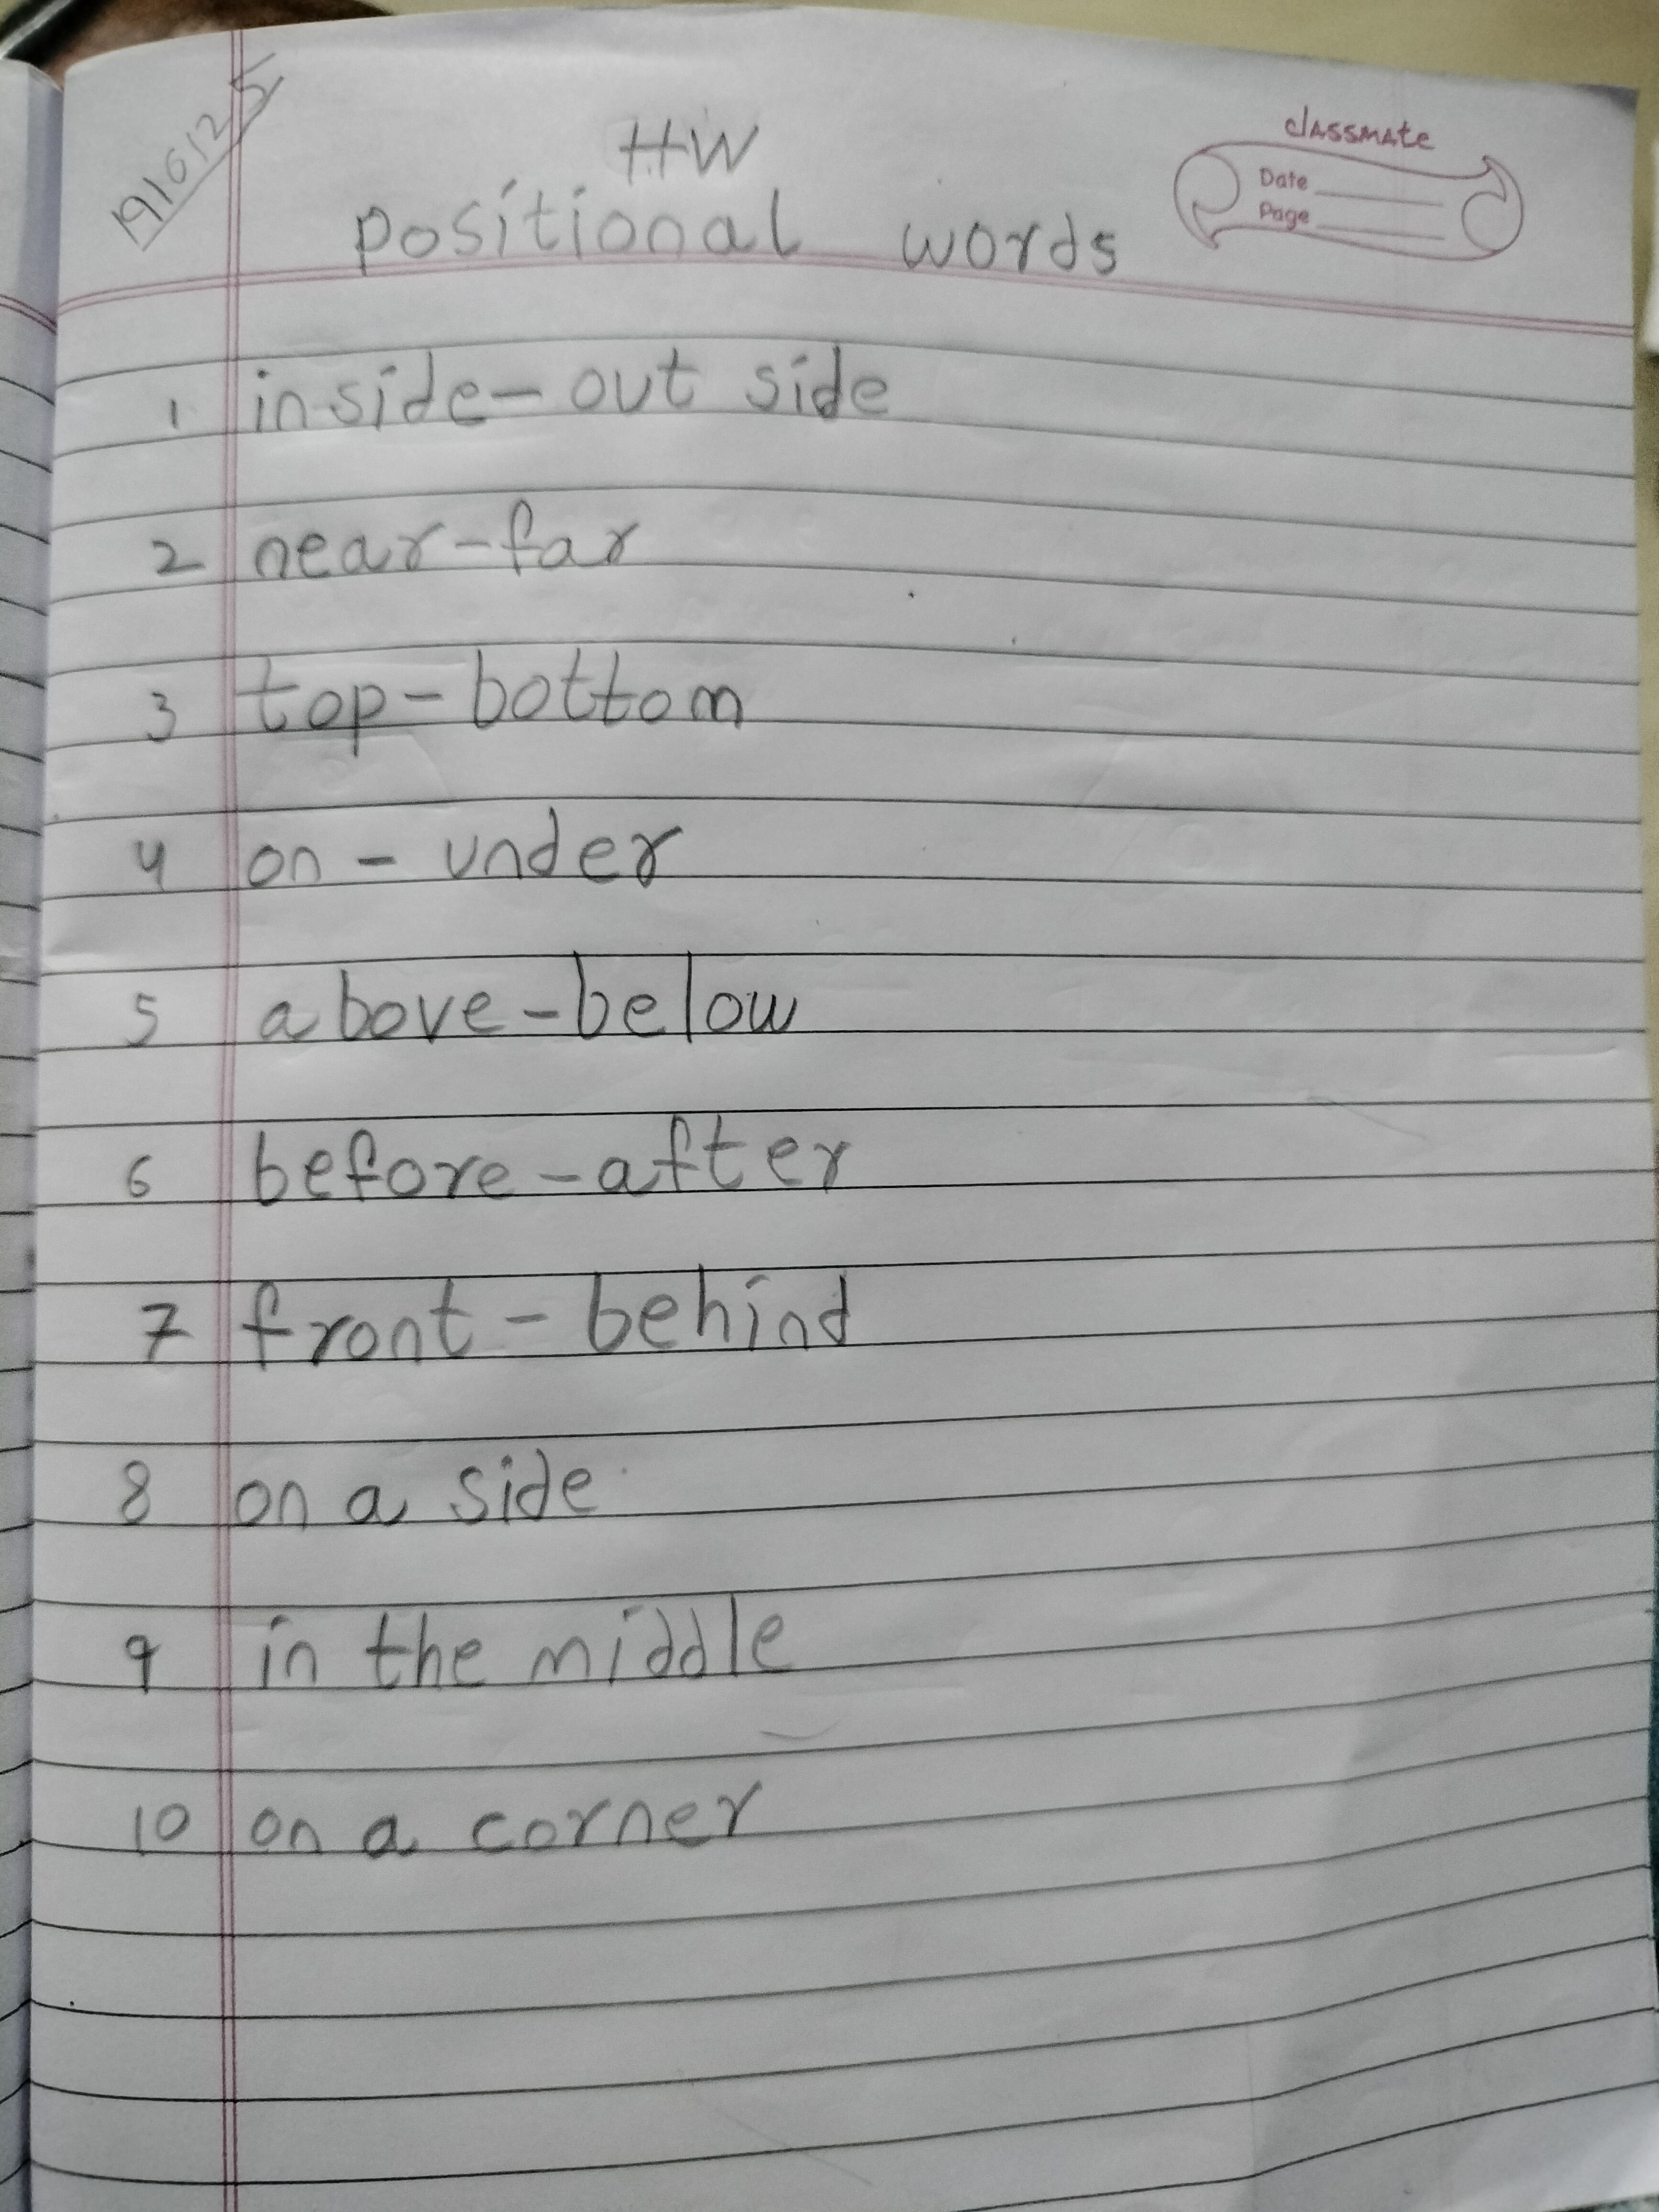 HW
classmate
Date
Page
positional words
1 inside - out side
2 near - far
3 top - bottom
4 on - under
5 above - below
6 before - after
7 front - behind
8 on a side
9 in the middle
10 on a corner